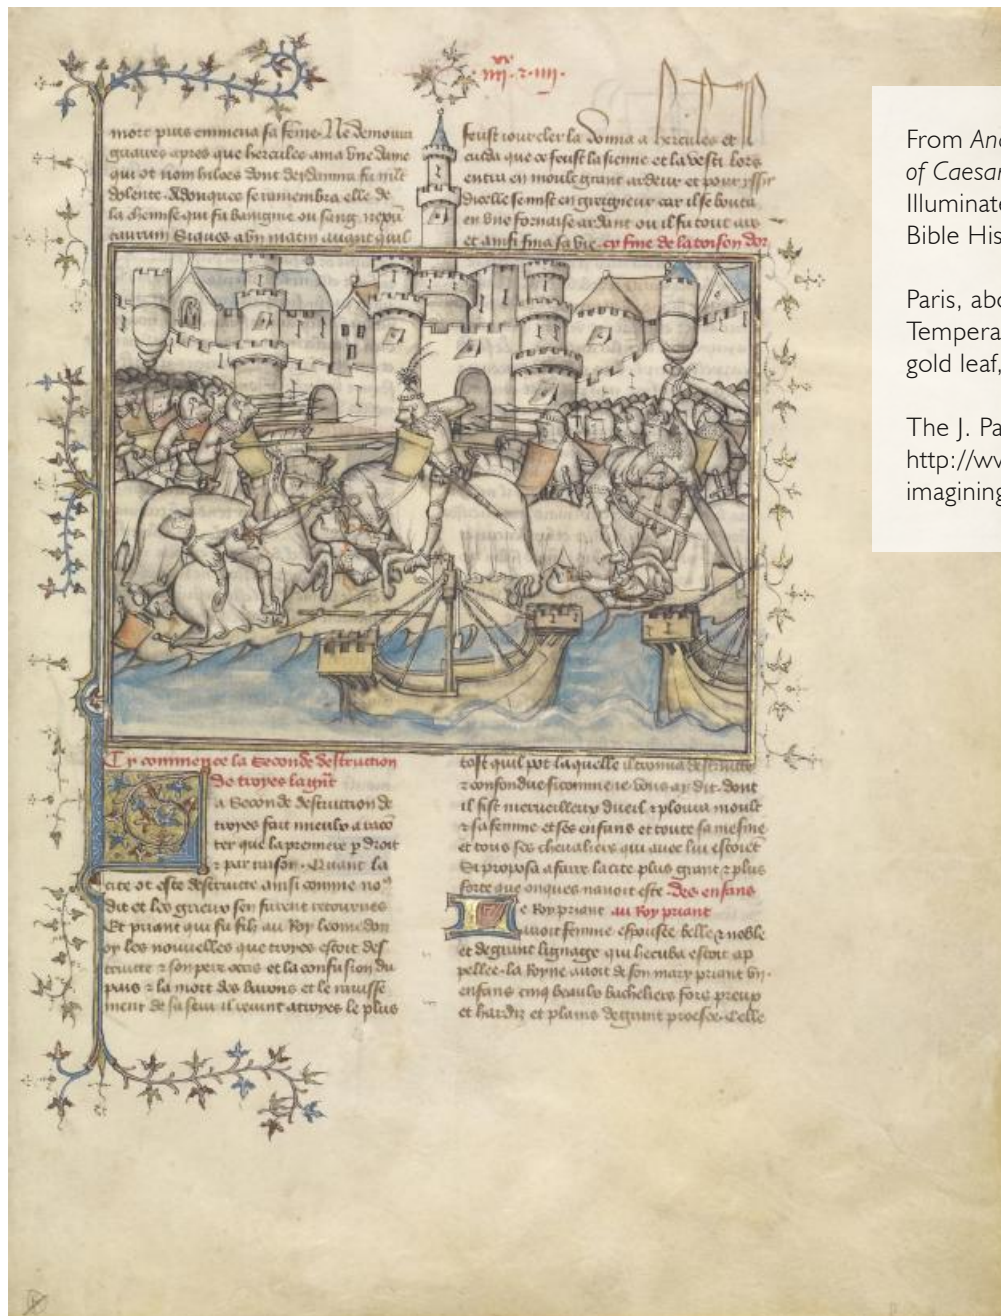 mort puis emmena sa feme. Ne demoura
gueres apres que hercules ama une dame
qui ot nom hiloes dont fu mlt
dolente. Adonques se ramembra elle de
la chemise qui fu ou sanc
Si que a un matin quil
feust la dona a hercules et il
cuida que ce feust la sienne et la vesti lors
entra en moult grant ardeur et pour yssir
dicelle se mist en greigneur car il se bouta
en une fornaise ardant ou il fu tout ars
et ainsi fina sa vie. cy fine de la toison dor
Cy commence la seconde destruction
de troyes la gnt
a seconde destruction de
troyes fait mieulx a raco
ter que la premiere p droit
et par raison. Quant la
cite ot este destruicte ainsi comme no9
dit et les grieux sen furent retournes
Et priant qui fu filz au Roy leomedon
oy les nouvelles que troyes estoit des
truicte et son pere occis et la confusion du
pais et la mort des barons et le ravisse
ment de sa seur il revint a troyes le plus
tost quil pot laquelle il trouva destruicte
et confondue si comme ie vous ay dit. dont
il fist merveilleux dueil et ploura moult
et sa femme et ses enfans et toute sa mesnie
et tous ses chevaliers qui avec lui estoiet
Si proposa a faire la cite plus grant et plus
forte que onques navoit este Des enfans
e Roy priant au Roy priant
avoit femme espousee belle et noble
et de grant lignage qui hecuba estoit ap
pellee. la Royne avoit de son mary priant
enfans cinq beaulx bacheliers fors preux
et hardiz et plains de grant proesce. Celle
From
of Caesar
Illuminate
Bible His
Paris, abo
Tempera
gold leaf,
The J. Pa
http://wv
imagining